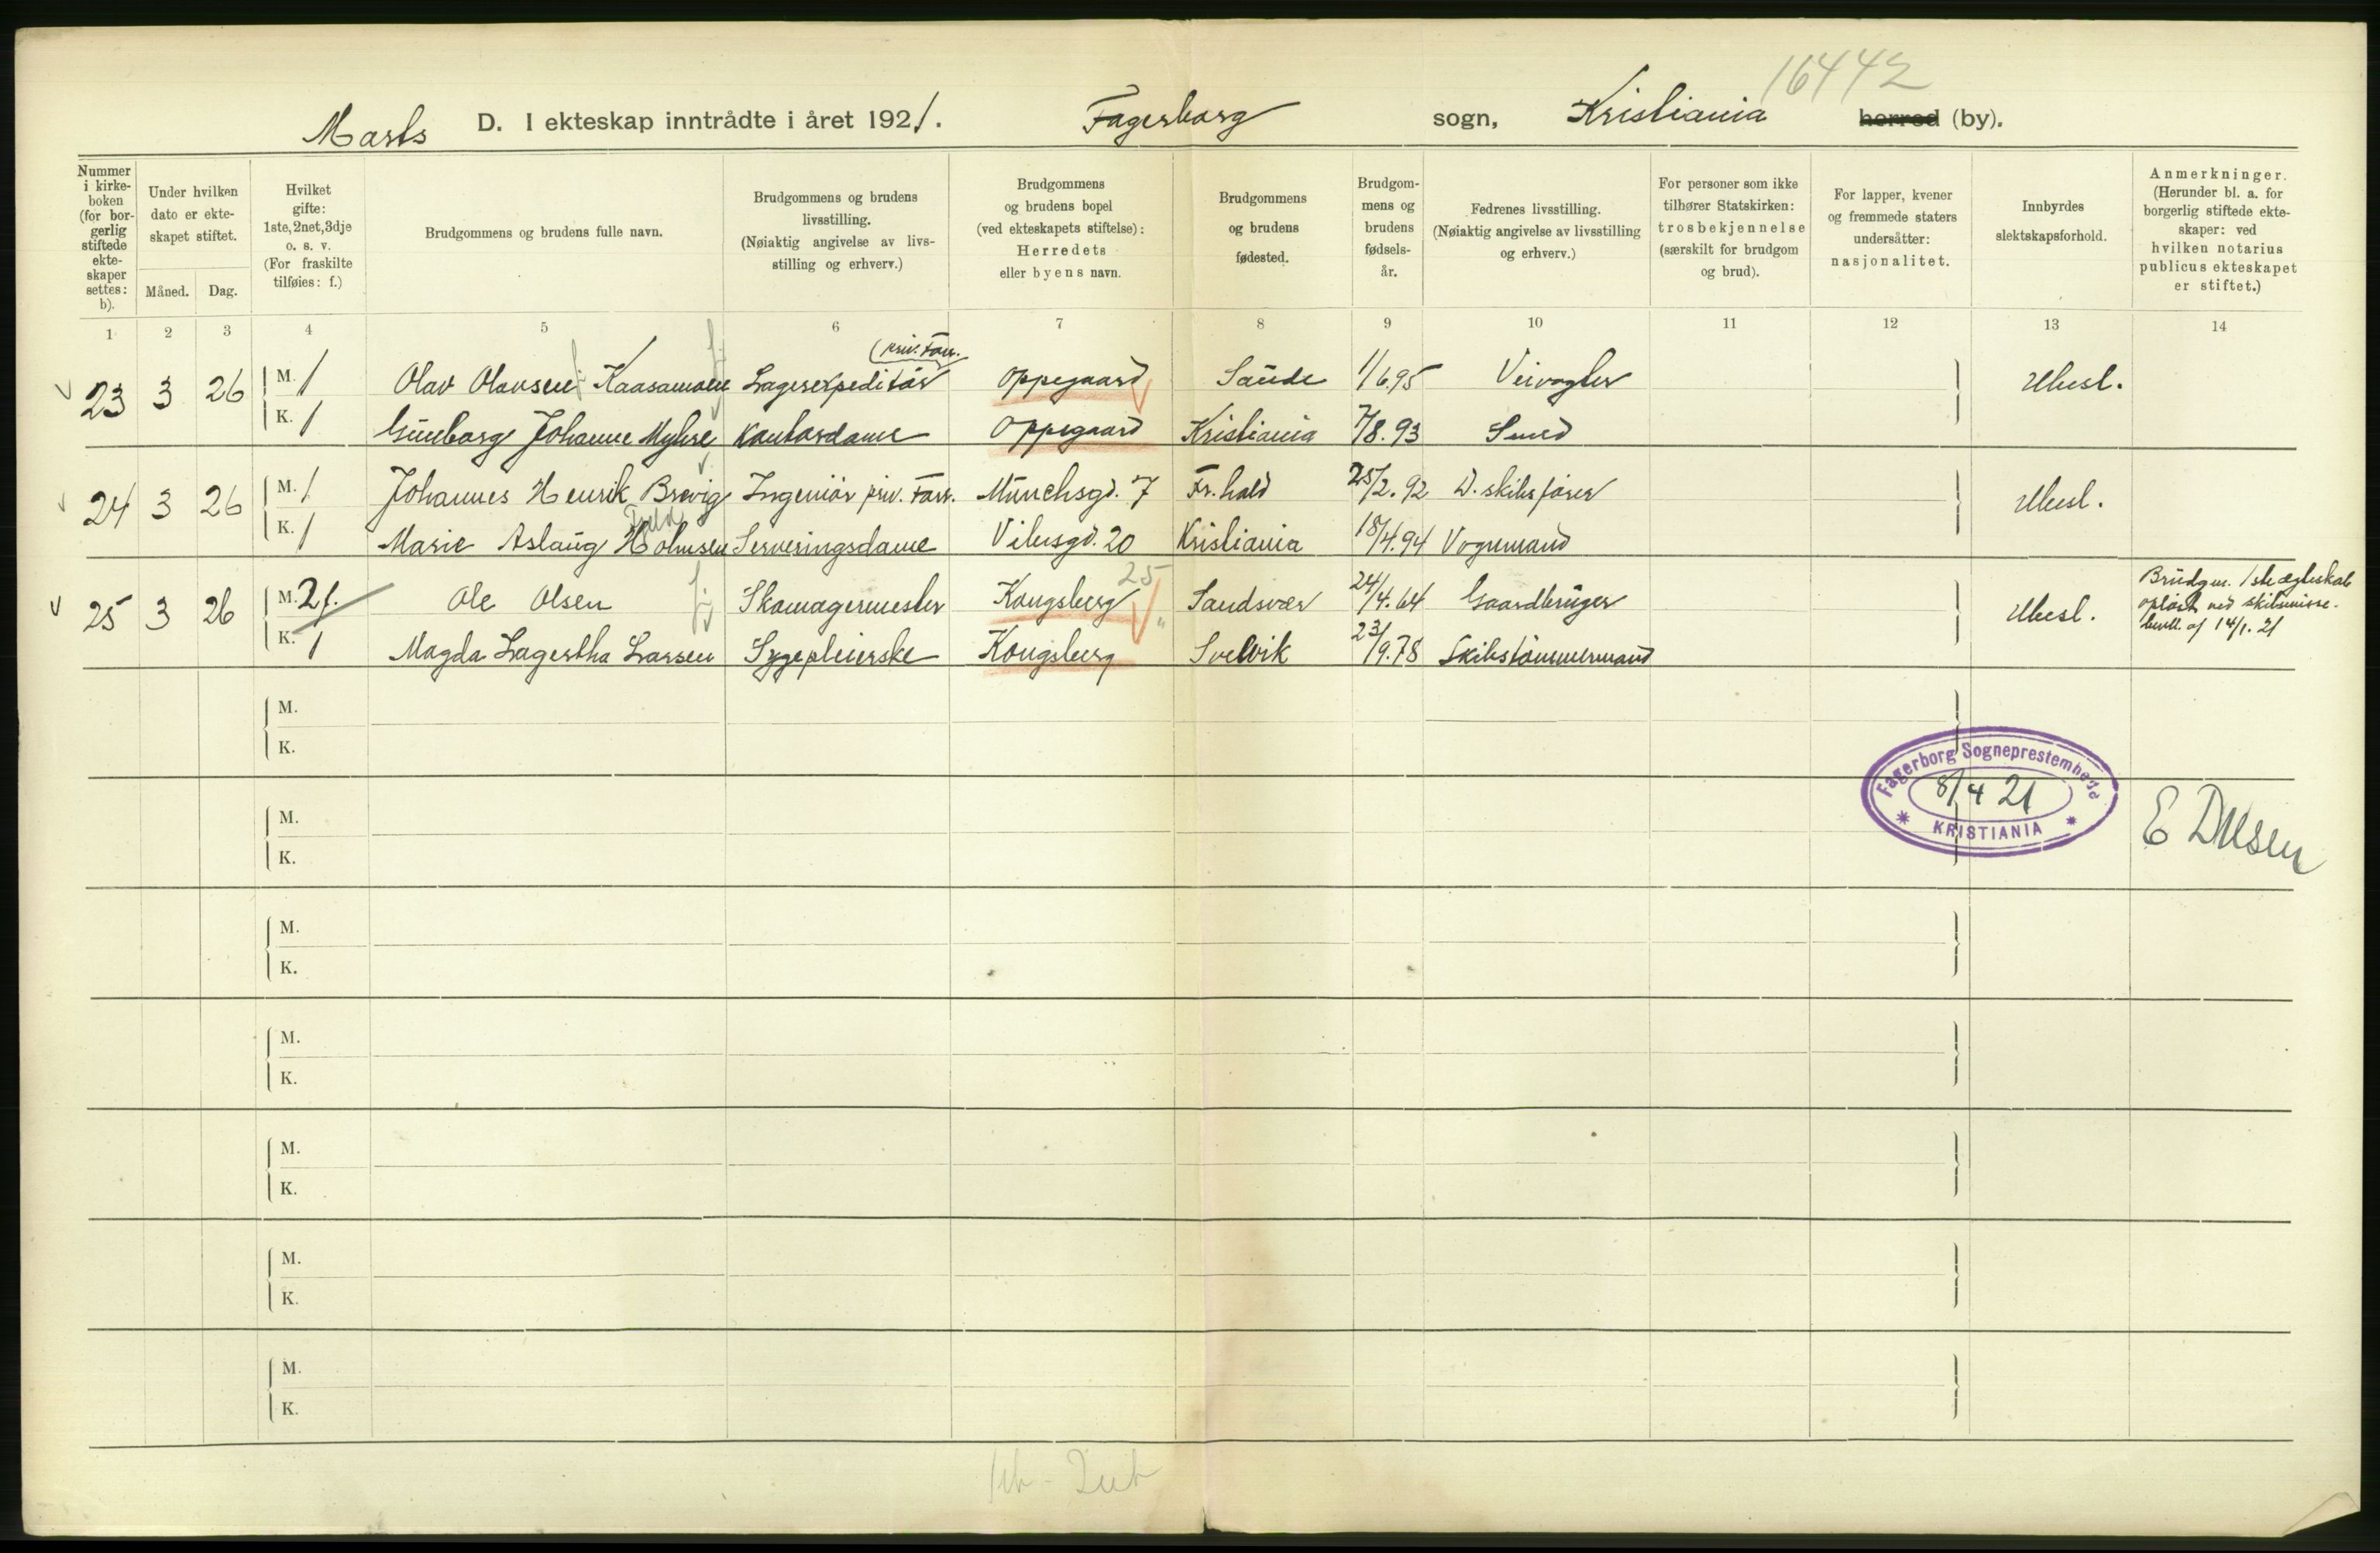 16442
Marts D. I ekteskap inntrådte i året 1921. Fagerborg sogn, Kristiania herred (by).
Nummer i kirke-boken (for bor-gerlig stiftede ekte-skaper settes: b).
Under hvilken dato er ekte-skapet stiftet.
Måned. Dag.
Hvilket gifte: 1ste, 2net, 3dje o. s. v. (For fraskilte tilføies: f.)
Brudgommens og brudens fulle navn.
Brudgommens og brudens livsstilling. (Nøiaktig angivelse av livs-stilling og erhverv.)
Brudgommens og brudens bopel (ved ekteskapets stiftelse): Herredets eller byens navn.
Brudgommens og brudens fødested.
Brudgom-mens og brudens fødsels-år.
Fedrenes livsstilling. (Nøiaktig angivelse av livsstilling og erhverv.)
For personer som ikke tilhører Statskirken: trosbekjennelse (særskilt for brudgom og brud).
For lapper, kvener og fremmede staters undersåtter: nasjonalitet.
Innbyrdes slektskapsforhold.
Anmerkninger. (Herunder bl. a. for borgerlig stiftede ekte-skaper: ved hvilken notarius publicus ekteskapet er stiftet.)
1 2 3 4 5 6 7 8 9 10 11 12 13 14
(priv. Forr.
23 3 26 M. 1 Olav Olavsen Kaasamoen Lagerexpeditør Oppegaard Saude 1/6.95 Veivogter Ubesl.
K. 1 Gunborg Johanne Myhre Kontordame Oppegaard Kristiania 7/8.93 Smed
24 3 26 M. 1 Johannes Henrik Brevig Ingeniør priv. Forr. Munchsgd. 7 Fr.hald 25/2.92 D.skibsfører Ubesl.
K. 1 Marie Aslaug Holmsen Serveringsdame Vibesgd. 20 Kristiania 18/4.94 Vognmand
25
25 3 26 M. 2 f. Ole Olsen Skomagermester Kongsberg Sandsvær 24/4.64 Gaardbruger Ubesl.
K. 1 Magda Lagertha Larsen Sygepleierske Kongsberg Svelvik 23/9.78 Skibstømmermand
Brudgm. 1ste ægteskab
opløst ved skilsmisse-
bevill. af 14/1.21
M.
K.
M.
K.
Fagerborg Sogneprestembede
8/4 21
KRISTIANIA
M.
K.
M.
K.
M.
K.
M.
K.
M.
K.